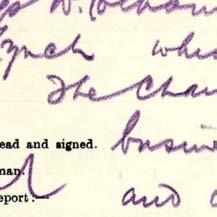 Lynch whi
The Chai
ead and signed. busin
man.
eport:— and